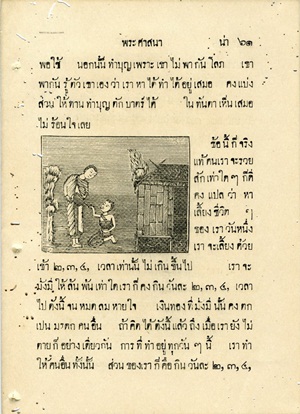 พระศาสนา น่า ๖๑
พอใช้ นอกนั้นทำบุญเพราะเขาไม่พากันโลภ เขา
พากันรู้ตัวเขาเองว่าเราหาได้ทำได้อยู่เสมอ คงแบ่ง
ส่วนให้ทานทำบุญตักบาตร์ได้ ในทันตาเห็นเสมอ
ไม่ร้อนใจเลย
ข้อนี้ก็จริง
แท้คนเราจะรวย
สักเท่าใด ๆ ก็ดี
คงแปลว่า หา
เลี้ยงชีวิต ๆ
ของเราวันหนึ่ง
เราจะเลี้ยงด้วย
เข้า ๒, ๓, ๔, เวลาเท่านั้น ไม่เกินขึ้นไป เราจะ
มั่งมีให้ล้นพ้นเท่าใดเราก็คงกินวันละ ๒, ๓, ๔, เวลา
ไปดังนี้จนหมดลมหายใจ เงินทองที่มั่งมีนั้นคงตก
เปนมาตกคนอื่น ถ้าคิดได้ดังนี้แล้ว ถึงเมื่อเรายังไม่
ตายก็อย่างเดียวกัน การที่ทำอยู่ทุกวัน ๆ นี้ เราทำ
ให้คนอื่นทั้งนั้น ส่วนของเราก็คือกินวันละ ๒, ๓, ๔,